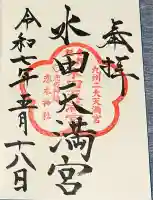 奉拝
九州二大天満宮
水田天満宮
恋木神社
令和七年五月十八日